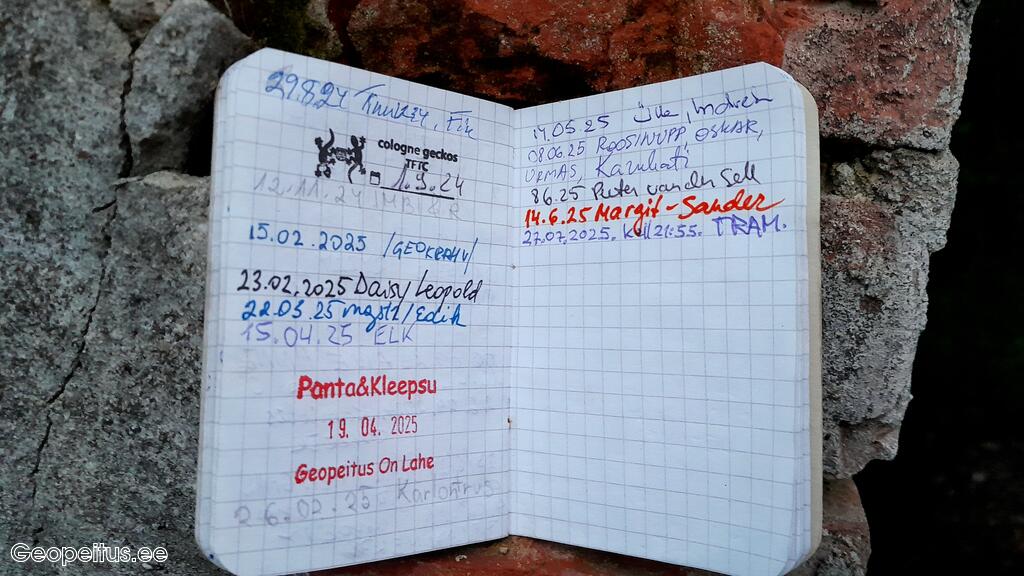 29.8.24
cologne geckos
TFTC
1.9.24
12.11.24
15.02.2025
23.02.2025 Daisy/Leopold
22.03.25 /Edik
15.04.25 ELK
Panta&Kleepsu
19. 04. 2025
Geopeitus On Lahe
25
14.05.25 Ülle, Indrek
08.06.25 ROOSINUPP, OSKAR,
URMAS,
8 6.25 Pieter van der Sell
14.6.25 Margit-Sander
27.07.2025. Kell 21:55. TRAM.
Geopeitus.ee